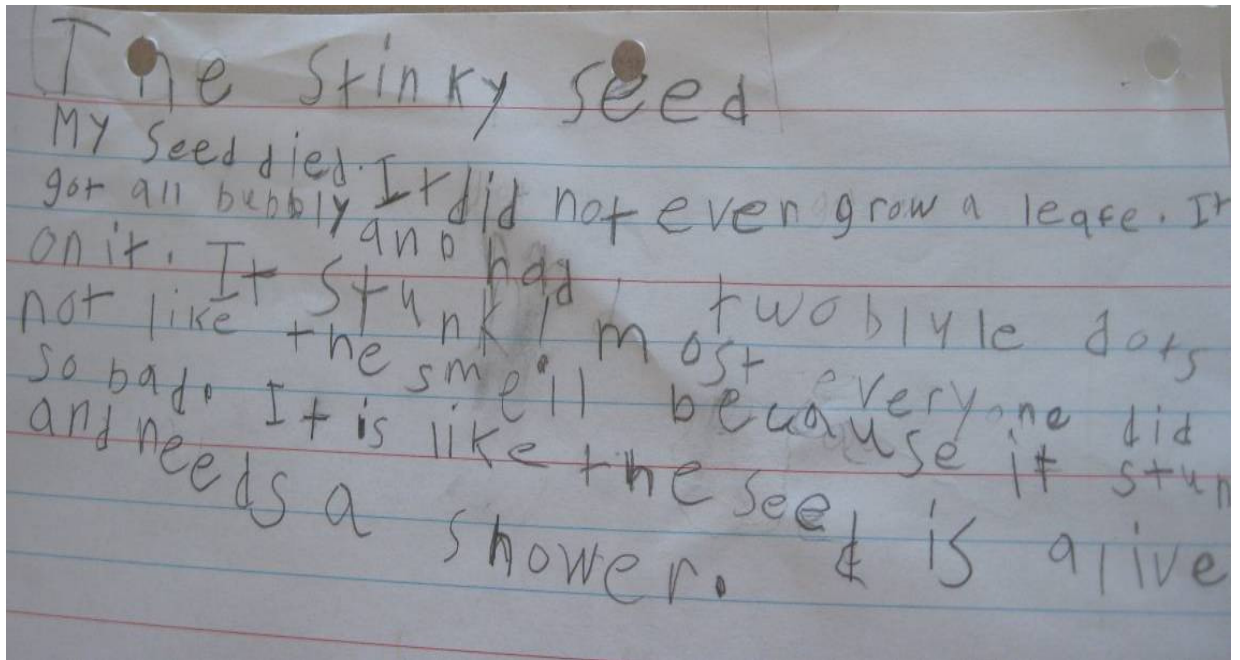 The Stinky Seed
My Seed died. It did not even grow a leafe. It
got all bubbly and had two blyle dots
on it. It stunk! most everyone did
not like the smell because it stun
so bad. It is like the seed is alive
and needs a shower.